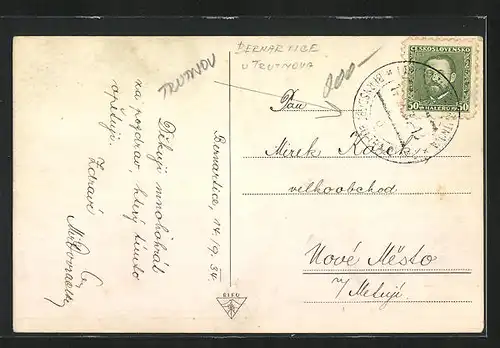 BERNARTICE
U TRUTNOVA
TRUTNOV
200-
ČESKOSLOVENSKO
50 HALERU 50
Bernartice, 14./9. 34.
Děkuji mnohokrát
za pozdrav, který tímto
opětuji.
Zdraví
Pán
Mirek
velkoobchod
Nové Město
n/ Metují.